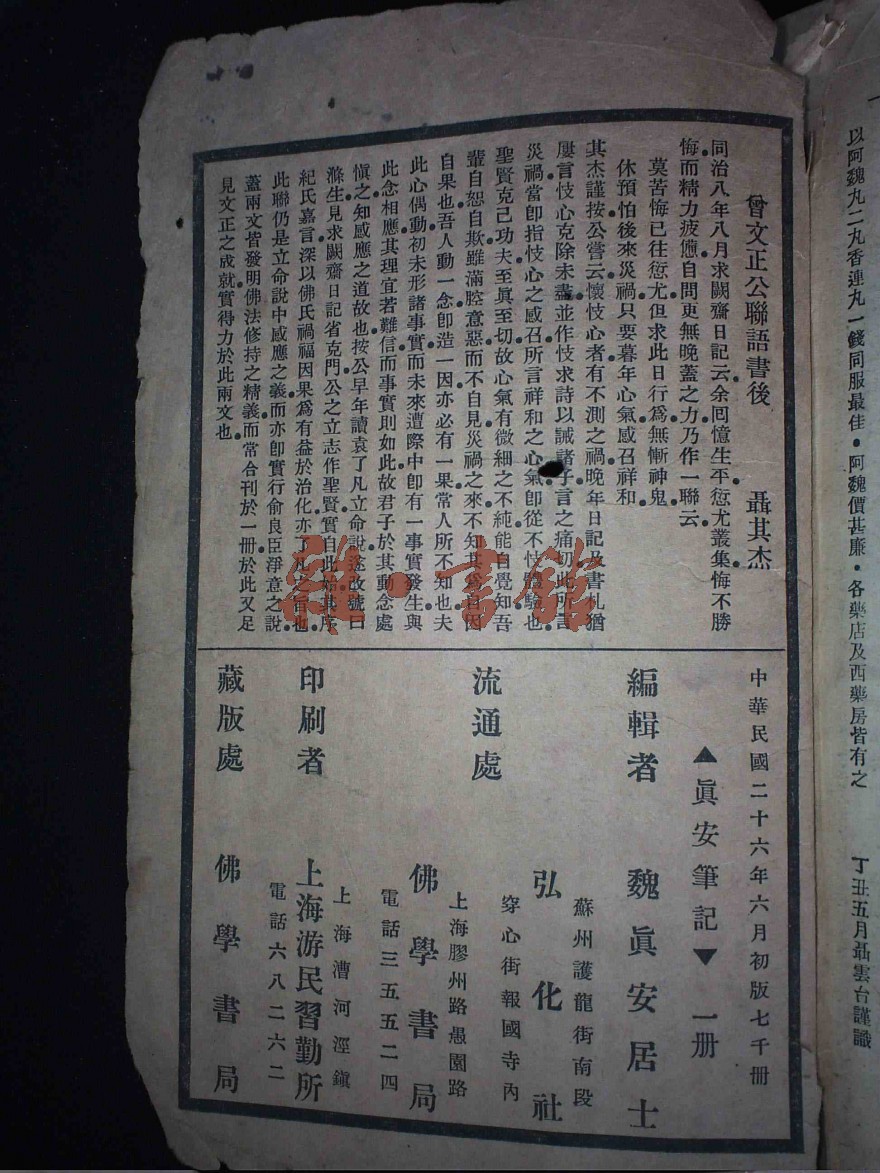 以阿魏九二丸香連丸一錢同服最佳•阿魏價甚廉•各藥店及西藥房皆有之
丁丑五月聶雲台謹識
曾文正公聯語書後 聶其杰
同治八年八月求闕齋日記云余回憶生平愆尤叢集悔不勝
悔而精力疲憊自問更無晚蓋之力乃作一聯云
莫苦悔已往愆尤但求此日行為無慚神鬼
休預怕後來災禍只要暮年心氣感召祥和
其杰謹按公嘗云懷忮心者有不測之禍晚年日記及書札猶
屢言忮心克除未盡並作忮求詩以誡諸子言之痛切此所言
災禍當卽指忮心之感召所言祥和之心氣卽從不忮體驗也
聖賢克己功夫至眞至切故心氣有微細之不純能自覺知吾
輩自恕自欺雖滿腔意惡而不自見災禍之來不知其為自因
自果也吾人動一念卽造一因亦必有一果常人所不知也夫
此心偶動初未形諸事實而未來遭際中卽有一事實發生與
此念相應其理宜若難信而事實則如此故君子於其動念處
愼之知感應之道故也按公早年讀袁了凡立命說遂改號曰
滌生見求闕齋日記省克門公之立志作聖賢實自此始其序
紀氏嘉言深以佛氏禍福因果為有益於治化亦了凡之旨也
此聯仍是立命說中感應之義而亦卽實行俞良臣淨意之說
蓋兩文皆發明佛法修持之精義而常合刊於一冊於此又足
見文正之成就實得力於此兩文也
中華民國二十六年六月初版七千冊
▲眞安筆記▼ 一冊
編輯者 魏眞安居士
蘇州護龍街南段
流通處 弘化社
穿心街報國寺內
上海膠州路愚園路
佛學書局
電話三五五二四
上海漕河涇鎮
印刷者 上海游民習勤所
電話六八二六二
藏版處 佛學書局
雜·書館